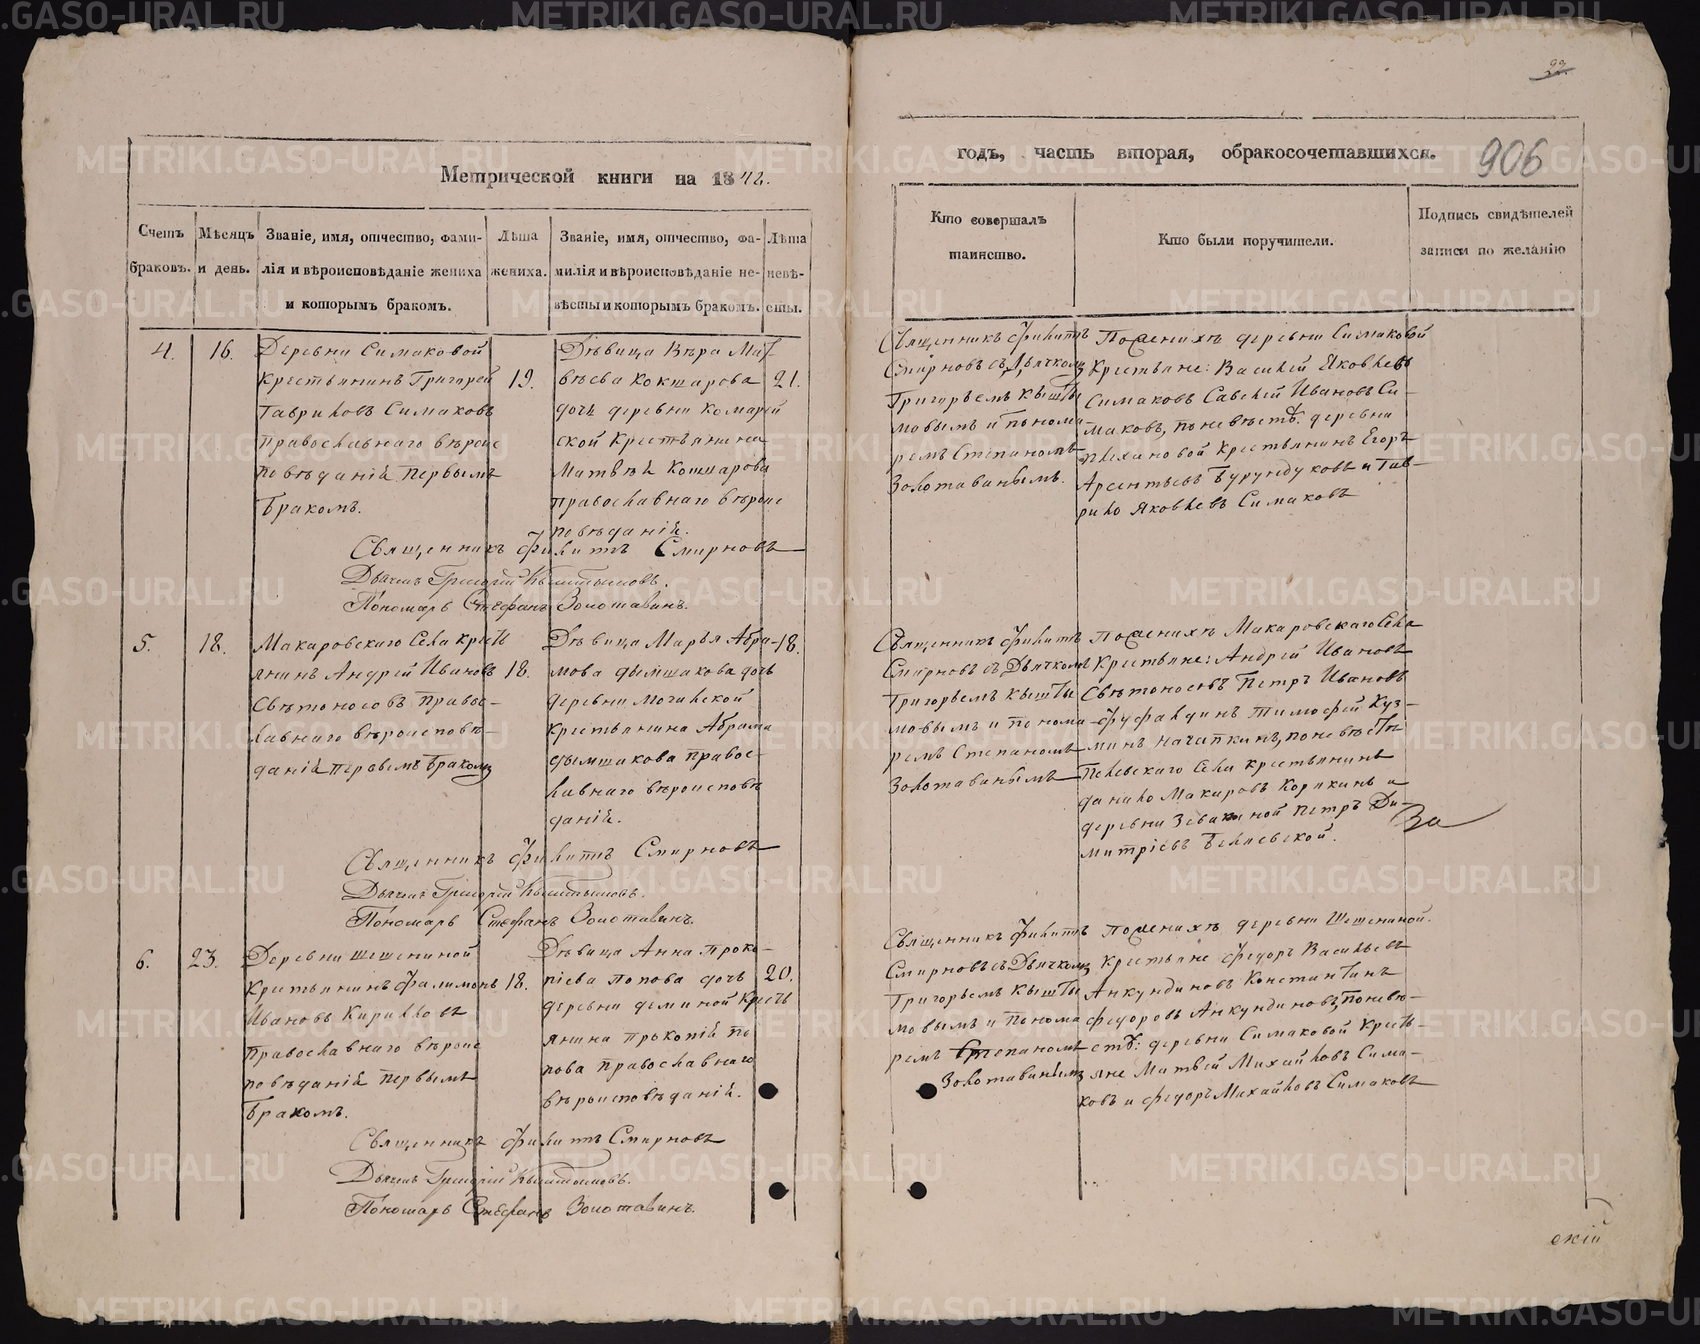 22.
Метрической книги на 1842.
годъ, часть вторая, обракосочетавшихся.
906
Счетъ браковъ.
Мѣсяцъ и день.
Званіе, имя, отчество, фами-
лія и вѣроисповѣданіе жениха
и которымъ бракомъ.
Лѣта
жениха.
Званіе, имя, отчество, фа-
милія и вѣроисповѣданіе не-
вѣсты и которымъ бракомъ.
Лѣта
невѣ-
сты.
Кто совершалъ
таинство.
Кто были поручители.
Подпись свидѣтелей
записи по желанію
4.
16.
Деревни Симаковой
крестьянинъ Григорей
Гавриловъ Симаковъ
православнаго вѣроис
повѣданій первымъ
бракомъ.
19.
Дѣвица Вѣра Мат-
вѣева Кокшарова
дочь деревни Комарей
ской крестьянина
Матвѣй Кокшарова
православнаго вѣроис
повѣданій.
21.
Священникъ Филитъ
Смирновъ съ Дьячкомъ
Григорьемъ Кышты
мовымъ и понома
ремъ Степаномъ
Золотавинымъ.
По женихѣ деревни Симаковой
крестьяне: Василей Яковлевъ
Симаковъ Савелей Ивановъ Си-
маковъ, по невѣстѣ: деревни
Плехановой крестьянинъ Егоръ
Арсентьевъ Бурундуковъ и Гав-
рило Яковлевъ Симаковъ
Священникъ Филитъ Смирновъ
Дьячекъ Григорій Кыштымовъ.
Пономарь Стефанъ Золотавинъ.
5.
18.
Макаровскаго Села кресть
янинъ Андрей Ивановъ
Свѣтоносовъ правос-
лавнаго вѣроисповѣ-
даній первымъ бракомъ
18.
Дѣвица Марья Абра-
мова Дымшакова дочь
деревни Мочилской
крестьянина Абрама
Дымшакова правос-
лавнаго вѣроисповѣ
даній.
18.
Священникъ Филитъ
Смирновъ съ Дьячкомъ
Григорьемъ Кышты
мовымъ и понома
ремъ Степаномъ
Золотавинымъ
По женихѣ Макаровскаго Села
крестьяне: Андрей Ивановъ
Свѣтоносовъ Петръ Ивановъ
Фуфалдинъ Тимофей Куз-
минъ Начапкинъ, по невѣсты
Пелевскаго Села крестьянинъ
Данило Макаровъ Корякинъ и
деревни Зевакиной Петръ Ди-
митріевъ Беляевской.
За
Священникъ Филитъ Смирновъ
Дьячекъ Григорій Кыштымовъ.
Пономарь Стефанъ Золотавинъ.
6.
23.
Деревни Шешениной
крестьянинъ Филимонъ
Ивановъ Кириловъ
православнаго вѣроис
повѣданій первымъ
бракомъ.
18.
Дѣвица Анна Проко-
піева Попова дочь
деревни Деминой кресть
янина Прокопій По
пова православнаго
вѣроисповѣданій.
20.
Священникъ Филитъ
Смирновъ съ Дьячкомъ
Григорьемъ Кышты
мовымъ и понома
ремъ Степаномъ
Золотавинымъ
По женихѣ деревни Шешениной.
крестьяне Федоръ Васильевъ
Анкундиновъ Константинъ
Федоровъ Анкундиновъ, по невѣ-
стѣ: деревни Симаковой кресть-
яне Матвей Михайловъ Сима-
ковъ и Федоръ Михайловъ Симаковъ
Священникъ Филитъ Смирновъ
Дьячекъ Григорій Кыштымовъ.
Пономарь Стефанъ Золотавинъ.
скій
METRIKI.GASO-URAL.RU